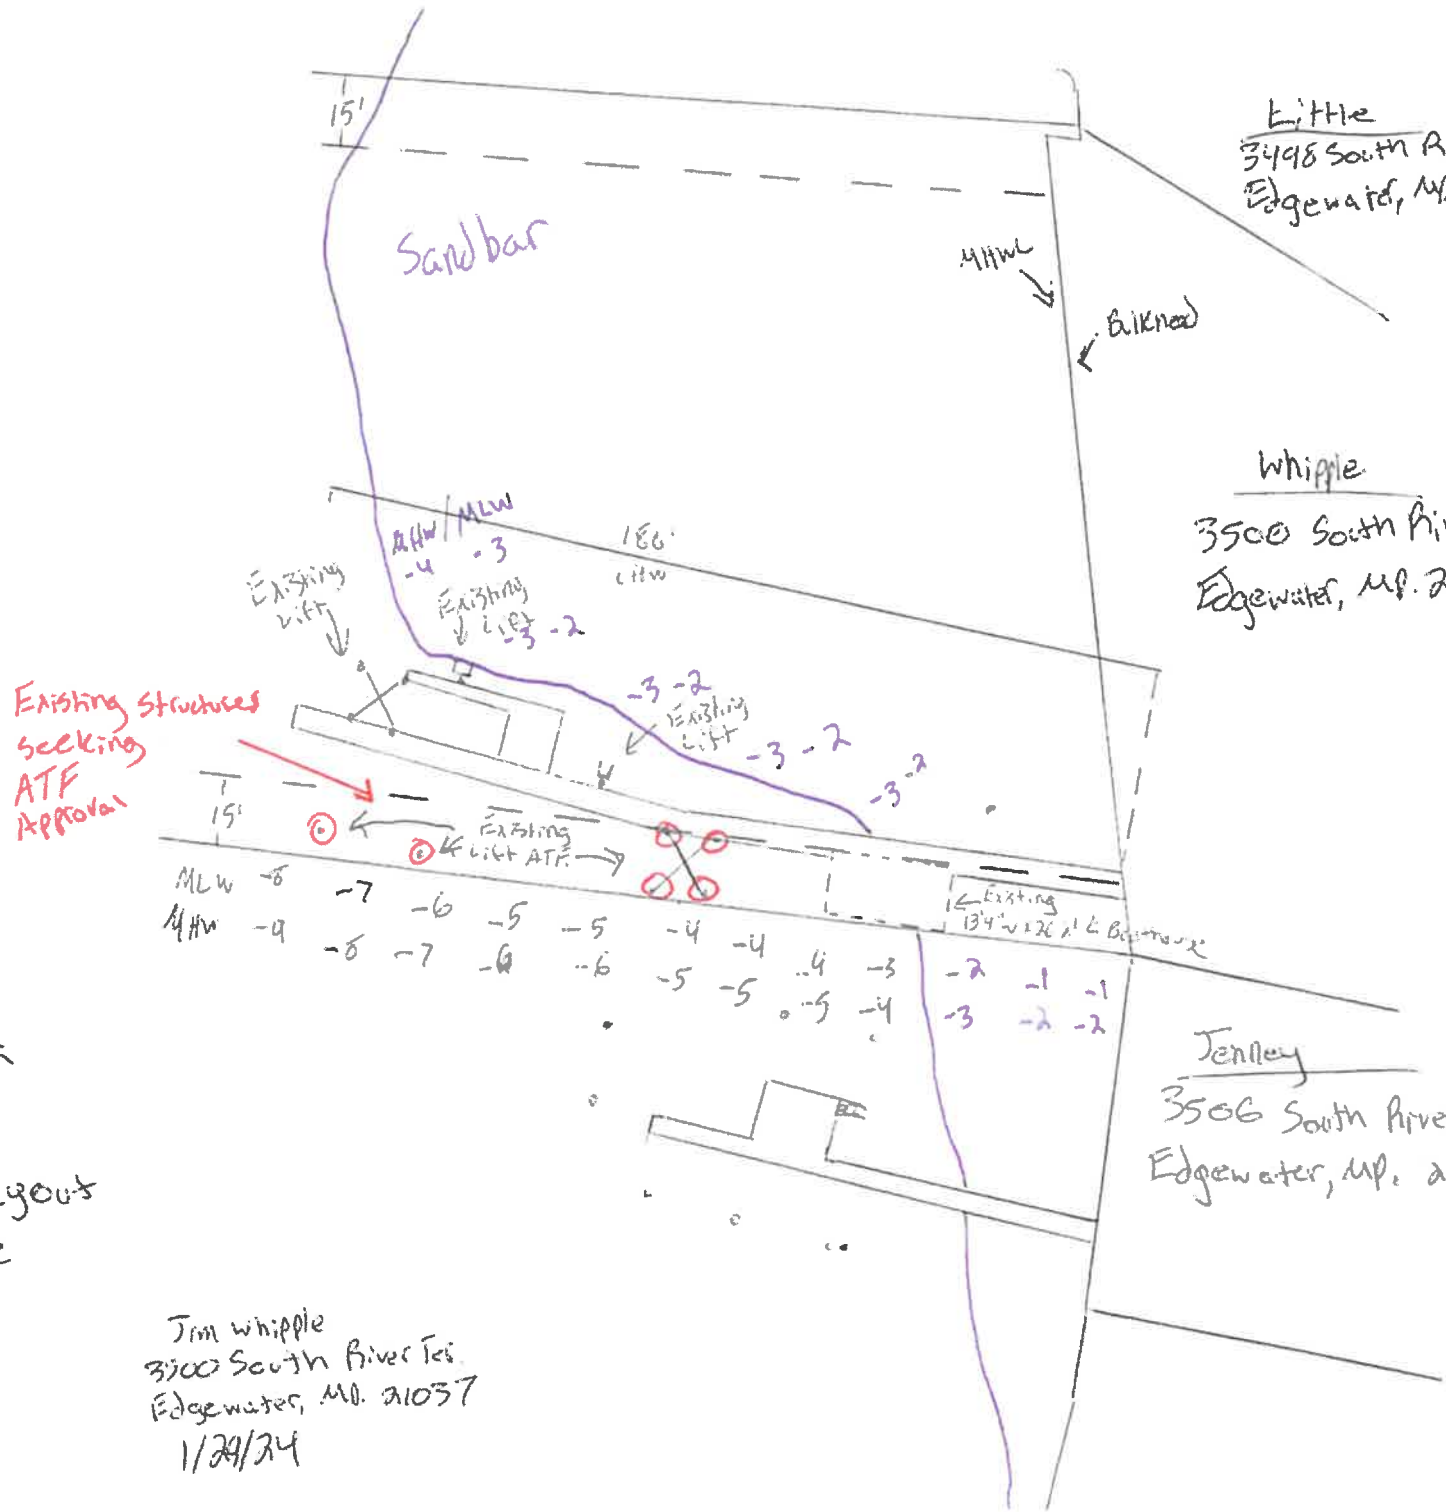 15'
Little
3498 South R
Edgewater, M
Sandbar
MHWL
Bulkhead
Whipple
3500 South Riv
Edgewater, MD. 2
MHW/MLW
-4 -3
186'
MHW
Existing
Lift
Existing
Lift
-3 -2
-3 -2
Existing
Lift
-3 -2
-3 -2
Existing structures
seeking
ATF
Approval
15'
Existing
Lift ATF
Existing
MLW -8 -7 -6 -5 -5 -4 -4 -4 -3 -2 -1 -1
MHW -9 -8 -7 -6 -6 -5 -5 -5 -4 -3 -2 -2
Jenney
3506 South Rive
Edgewater, MD. 2
yout
Jim Whipple
3500 South River Ter.
Edgewater, MD. 21037
1/29/24